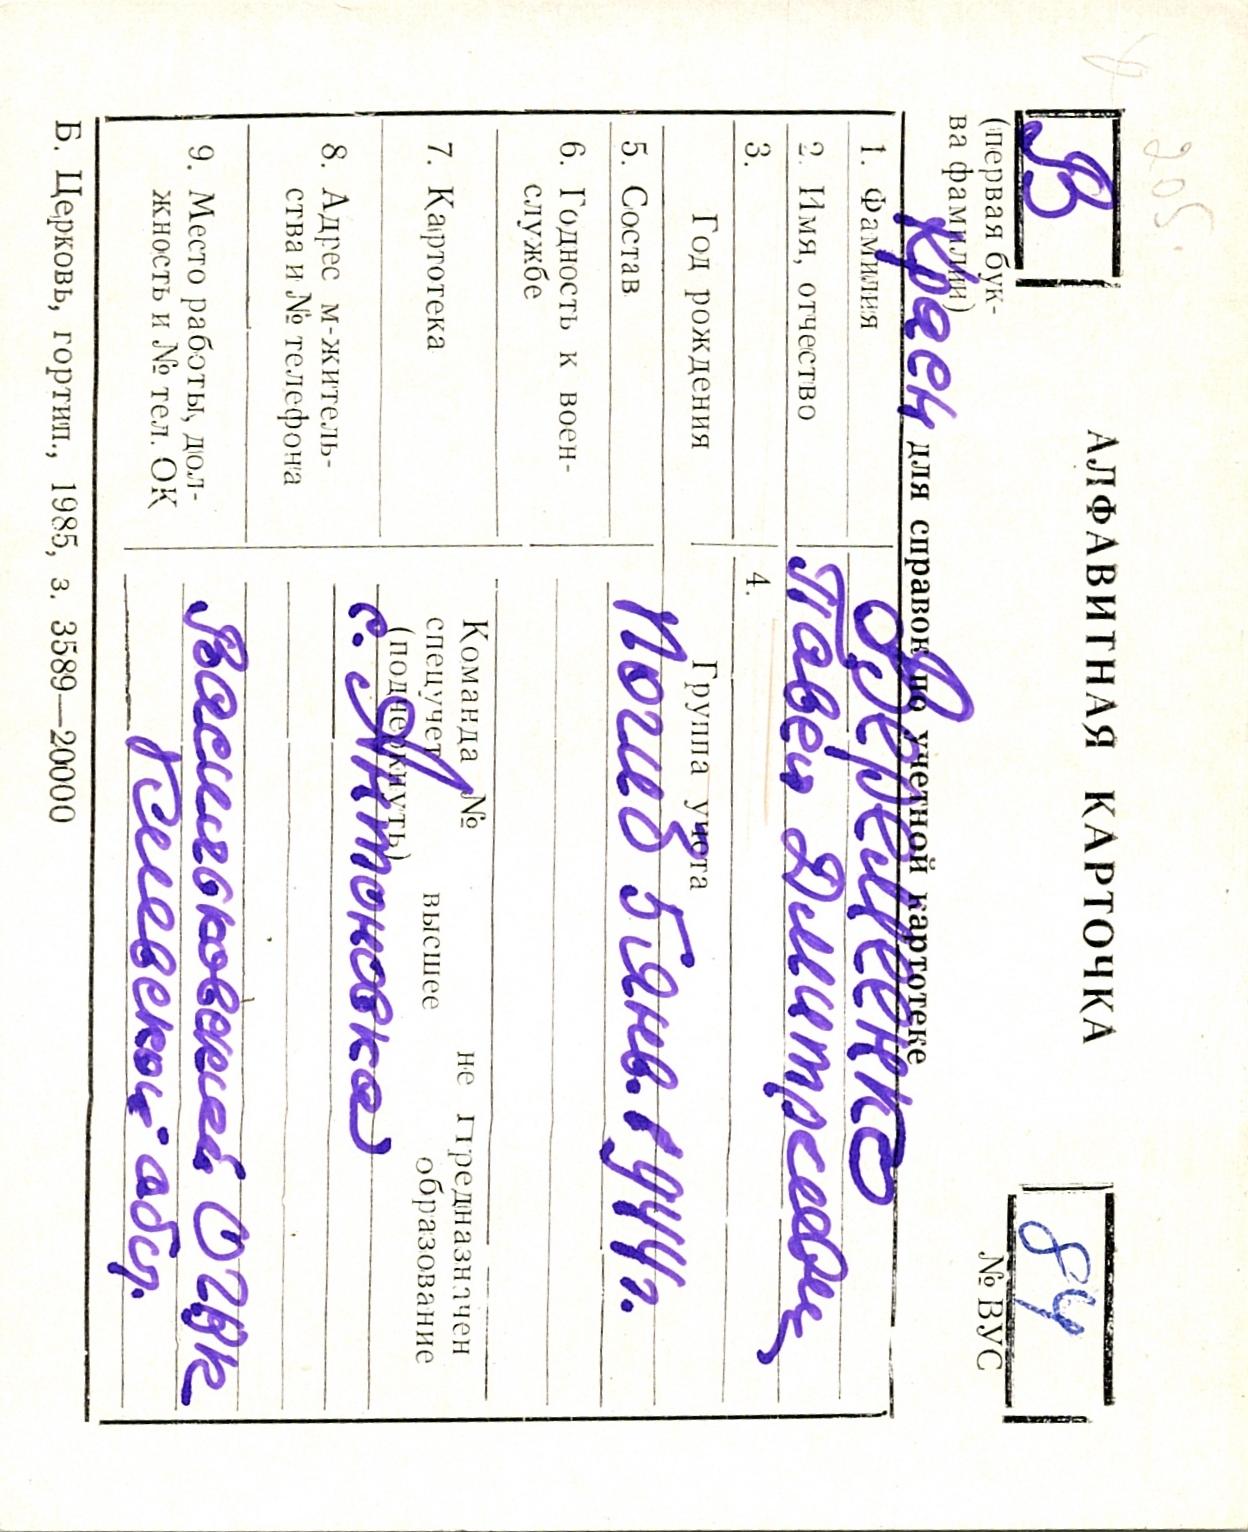 205.
В
(первая бук-
ва фамилии)
АЛФАВИТНАЯ КАРТОЧКА
84
№ ВУС
для справок по учетной картотеке
Краен
1. Фамилия
Веремеенко
2. Имя, отчество
Павел Дмитриевич
3.
Год рождения
4.
Группа учета
5. Состав
Погиб 5 янв. 1944г.
6. Годность к воен-
службе
7. Картотека
Команда № не предназначен
спецучет высшее образование
(подчеркнуть)
8. Адрес м-житель-
ства и № телефона
с. Антоновка
9. Место работы, дол-
жность и № тел. ОК
Васильковский ОГВК
Киевской обл.
Б. Церковь, гортип., 1985, з. 3589—20000